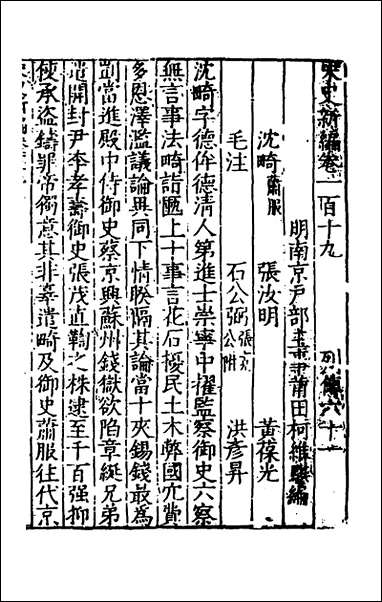 宋史新編卷一百十九　列傳六十一
明南京戶部主事莆田柯維騏編
沈畸蕭服　張汝明　黃葆光
毛注　石公弼張克公附　洪彥昇
沈畸字德侔德清人第進士崇寧中擢監察御史六察
無言事法畸詣匭上十事言花石擾民土木弊國冗貲
多恩澤濫議論異同下情睽隔其論當十夾錫錢最為
剴當進殿中侍御史蔡京興蘇州錢獄欲陷章綖兄弟
遣開封尹李孝壽御史張茂直鞫之株逮至千百強抑
使承盜鑄罪帝獨意其非辜遣畸及御史蕭服往代京